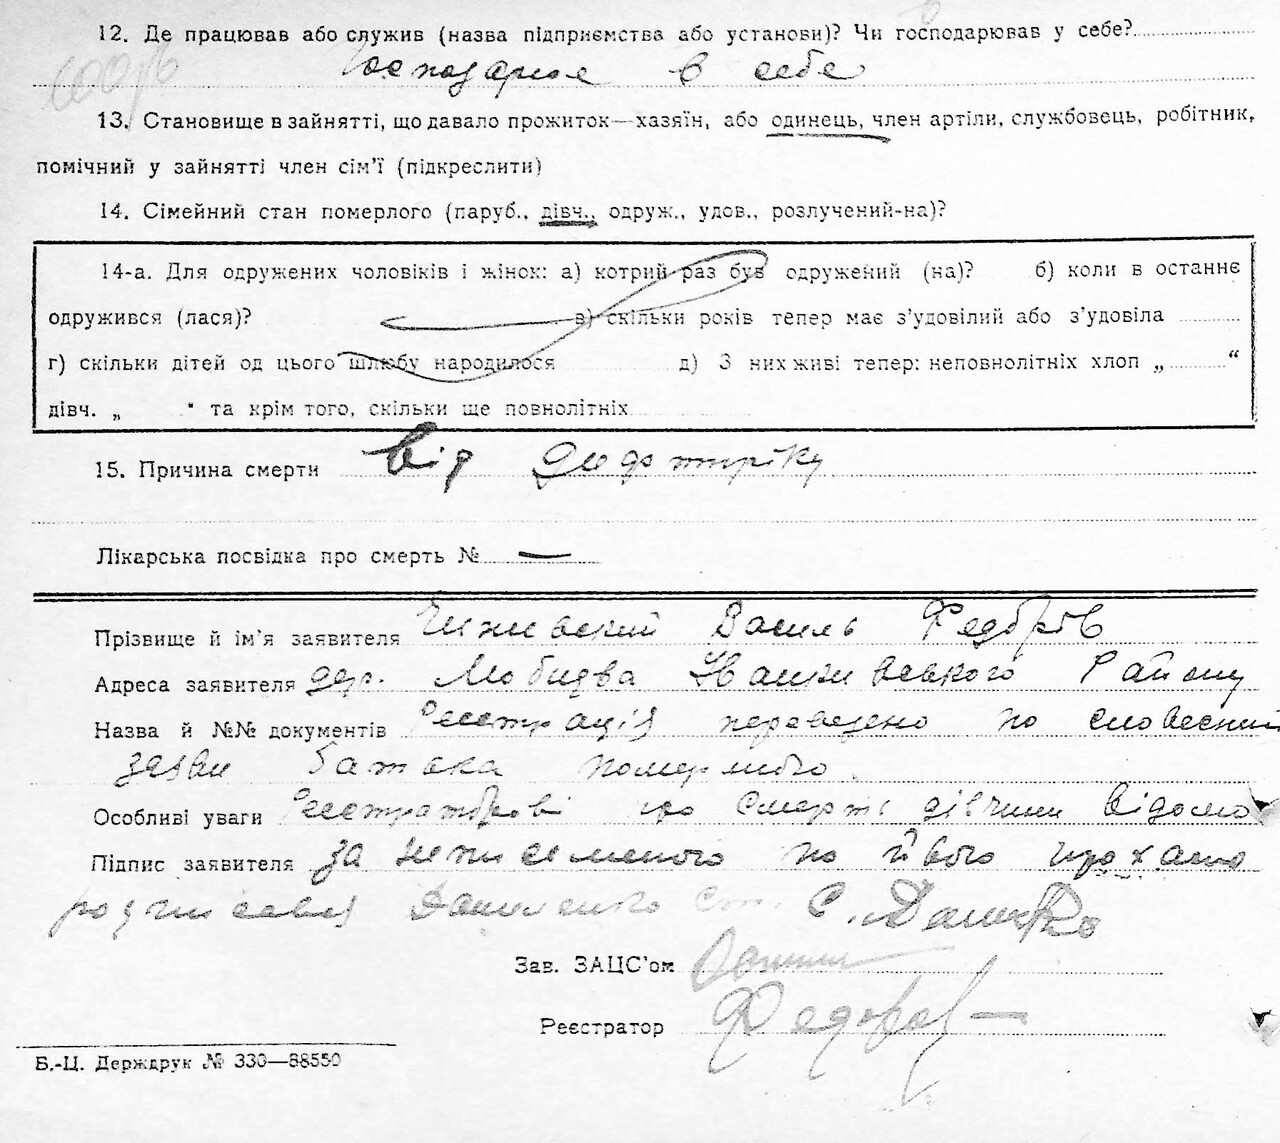 12. Де працював або служив (назва підприємства або установи)? Чи господарював у себе?
Господарює в себе
13. Становище в зайнятті, що давало прожиток—хазяїн, або одинець, член артіли, службовець, робітник,
помічний у зайнятті член сім'ї (підкреслити)
14. Сімейний стан померлого (паруб., дівч., одруж., удов., розлучений-на)?
14-а. Для одружених чоловіків і жінок: а) котрий раз був одружений (на)? б) коли в останнє
одружився (лася)? в) скільки років тепер має з'удовілий або з'удовіла
г) скільки дітей од цього шлюбу народилося д) З них живі тепер: неповнолітніх хлоп „ “
дівч. „ “ та крім того, скільки ще повнолітніх
15. Причина смерти від
Лікарська посвідка про смерть № —
Прізвище й ім'я заявителя Василь Федорів
Адреса заявителя дер. Району
Назва й №№ документів Реєстрація переведено по словесний
заяви батька померлого
Особливі уваги Реєстраторові що смерть дівчини відомо
Підпис заявителя за неписьменого по його прохано
розписався Даниленко
Зав. ЗАЦС'ом
Реєстратор Федоров
Б.-Ц. Держдрук № 330—88550